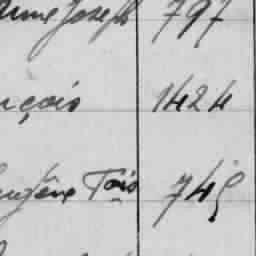 Joseph 797
nçois 1424
Eugène Fois 745